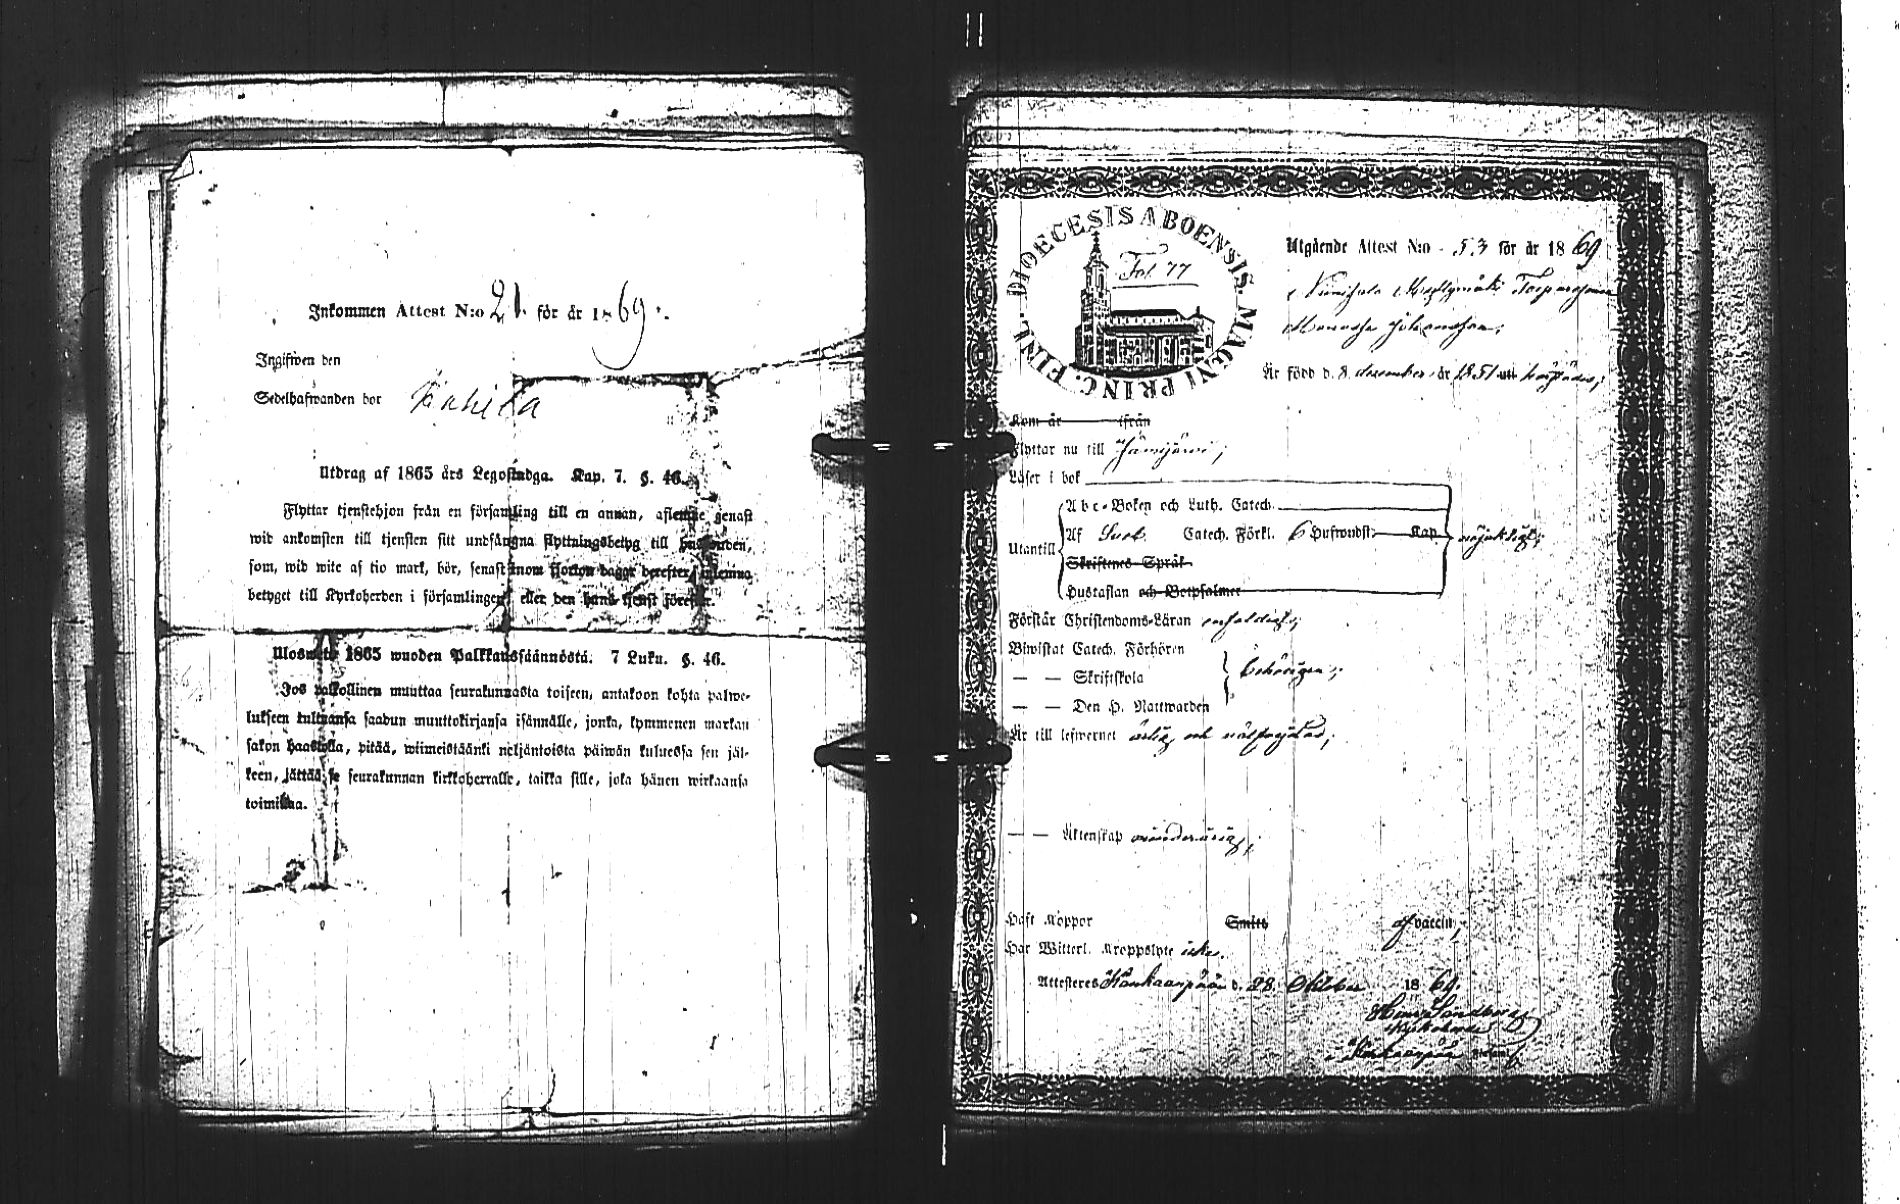 Inkommen Attest N:o 21. för år 1869.
Ingifwen den
Sedelhafwanden bor
Utdrag af 1865 års Legostadga. Kap. 7. §. 46.
Flyttar tjenstehjon från en församling till en annan, aflemne genast
wid ankomsten till tjensten sitt undfångna flyttningsbetyg till husbonden,
som, wid wite af tio mark, bör, senast inom fjorton dagar derefter, inlemna
betyget till Kyrkoherden i församlingen eller den hans tjenst förestår.
Ulosweto 1865 wuoden Palkkaussäännöstä. 7 Luku. §. 46.
Jos palkollinen muuttaa seurakunnasta toiseen, antakoon kohta palwe-
lukseen tultuansa saadun muuttokirjansa isännälle, jonka, kymmenen markan
sakon haastolla, pitää, wiimeistäänki neljäntoista päiwän kuluessa sen jäl-
keen, jättää se seurakunnan kirkkoherralle, taikka sille, joka hänen wirkaansa
toimittaa.
DIOECESIS ABOENSIS. MAGNI PRINC. FINL.
Fol 77
Utgående Attest N:o 53 för år 1869
Torparesonen
Är född d. 8 december år 1851 uti
Kom år ifrån
Flyttar nu till Jämijärvi;
Läser i bok
Abc-Boken och Luth. Catech.
Utantill Af Sveb. Catech. Förkl. 6 Hufwudst. Kap. nöjaktigt;
Skriftenes Språk
Hustaflan och Botpsalmer
Förstår Christendoms-Läran enfaldigt;
Biwistat Catech. Förhören
— — Skriftskola behörigen;
— — Den H. Nattwarden
Är till lefwernet ärlig och wälfrejdad;
— — Äktenskap minderårig;
Haft Koppor Smitt af vaccin;
Har Witterl. Kroppslyte icke.
Attesteres Kankaanpää d. 28 Oktober 1869.
Sandberg
Kyrkoherde
Kankaanpää